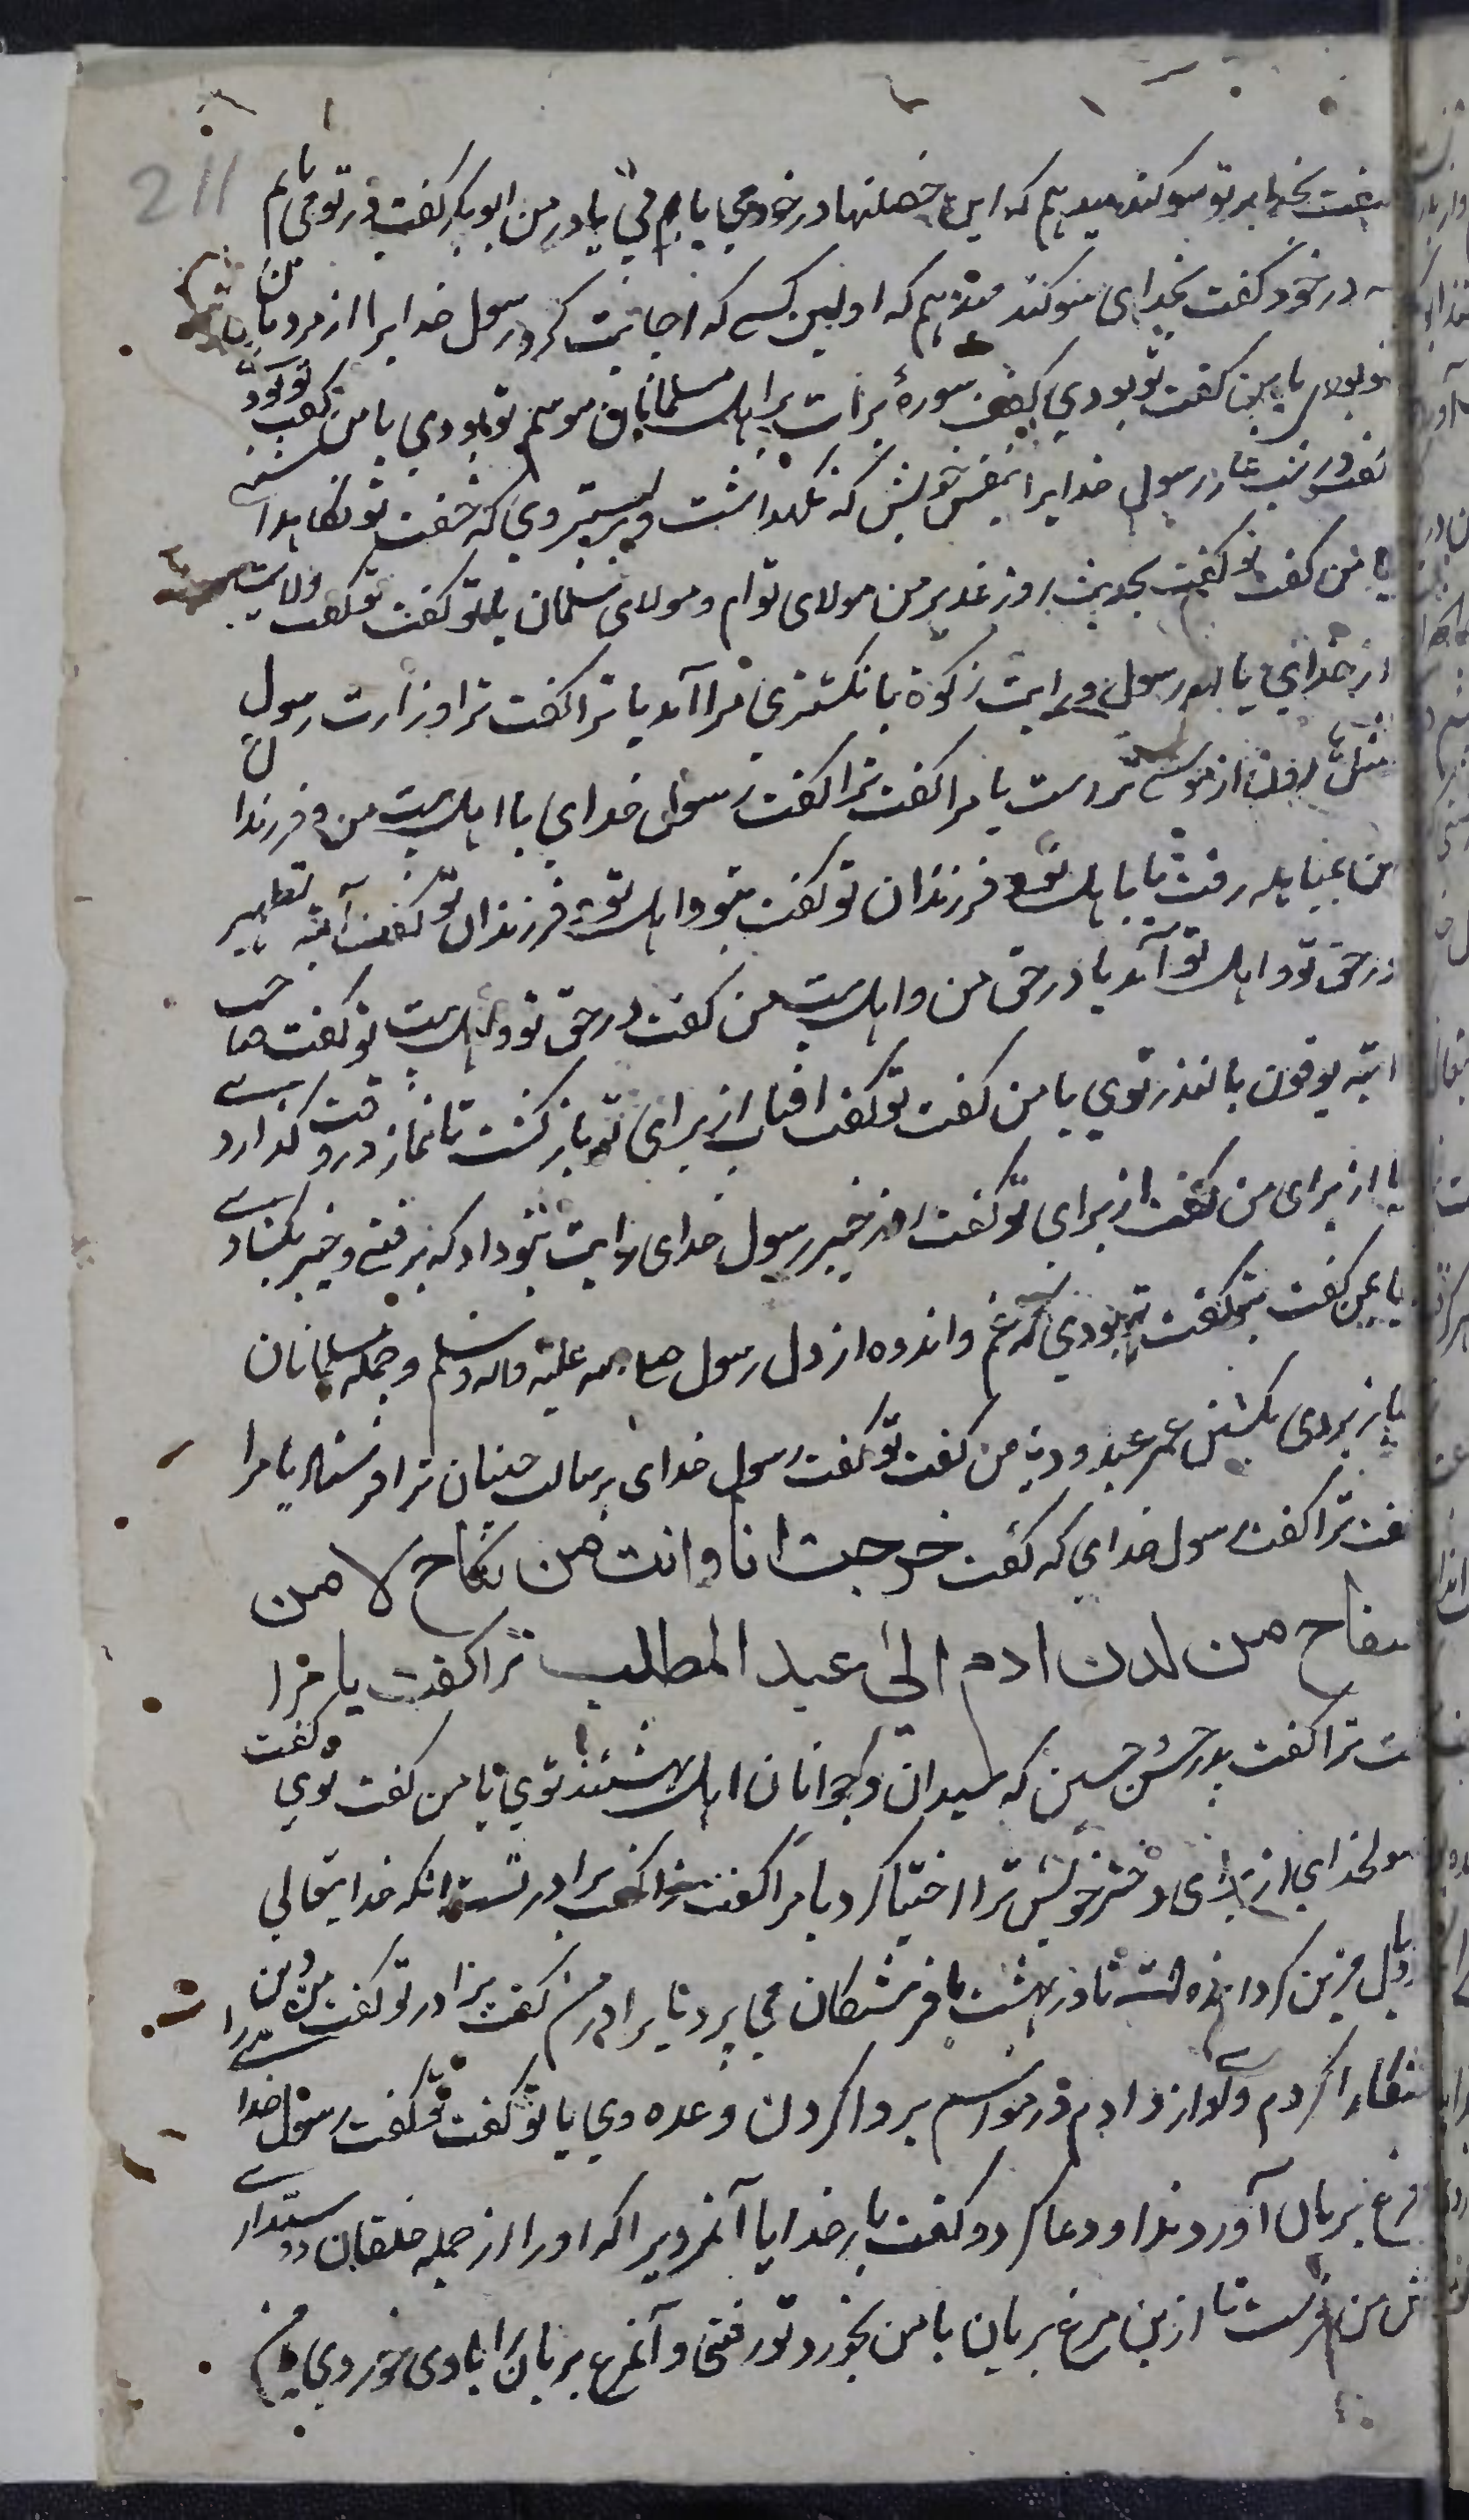 211
گفت بخدا بر تو سوگند میدهم که این خصلتها در خود می یابی یا در من ابوبکر گفت در تو می یابم
نه در خود گفت بخدای سوگند میدهم که اولین کسی که اجابت کرد رسول خدایرا از مردمان من
بودم یا تو گفت تو بودی گفت سورهٔ برات بر اهل موسم تو بودی یا من گفت تو بودی
گفت در شب غار رسول خدایرا بنفس خویش که نگهداشت و بر بستر وی که خفت تو نگاهداشتی
یا من گفت تو گفت بحدیث روز غدیر من مولای توام و مولای مسلمانان یا تو گفت تو گفت ولایت
از خدای با رسول در ایت زکوة بانگشتری مرا آمد یا ترا گفت ترا وزارت رسول
مثل هارون از موسی تراست یا مرا گفت ترا گفت رسول خدای با اهل بیت من و فرزندان
من بمباهله رفت یا با اهل تو و فرزندان تو گفت بتو و اهل تو و فرزندان تو گفت آیة تطهیر
در حق تو و اهل تو آمد یا در حق من و اهل بیت من گفت در حق تو و اهل بیت تو گفت صاحب
آیة یوفون بالنذر توی یا من گفت تو گفت افتاب از برای تو باز گشت تا نماز در وقت گذاردی
یا از برای من گفت از برای تو گفت روز خیبر رسول خدای رایت بتو داد که برفتی و خیبر بگشادی
یا بمن گفت بتو گفت تو بودی که غم و اندوه از دل رسول صلی الله علیه و اله و سلم و جمله مسلمانان
باز بردی بکشتن عمر عبدود یا من گفت تو گفت رسول خدای برسالت جنیان ترا فرستاد یا مرا
گفت ترا گفت رسول خدای که گفت خرجت انا وانت من نکاح لا من
سفاح من لدن ادم الی عبد المطلب ترا گفت یا مرا
گفت ترا گفت پدر حسن و حسین که سیدان و جوانان اهل بهشتند توی یا من گفت توی گفت
رسولخدای از برای دختر خویش ترا اختیار کرد یا مرا گفت ترا گفت برادر تست انکه خدایتعالی
بدو بال مزین گردانیده است تا در بهشت با فرشتگان می پرد یا برادر من گفت برادر تو گفت من دین
آشکارا کردم و آواز دادم در مواسم بروا کردن وعده وی یا تو گفت تو گفت رسول خدا
مرغ بریان آوردند او دعا کرد و گفت بار خدایا آنمردیرا که او را از جمله خلقان دوستداری
پیش من فرست تا ازین مرغ بریان با من بخورد تو رفتی و آنمرغ بریان را با وی خوردی یا من